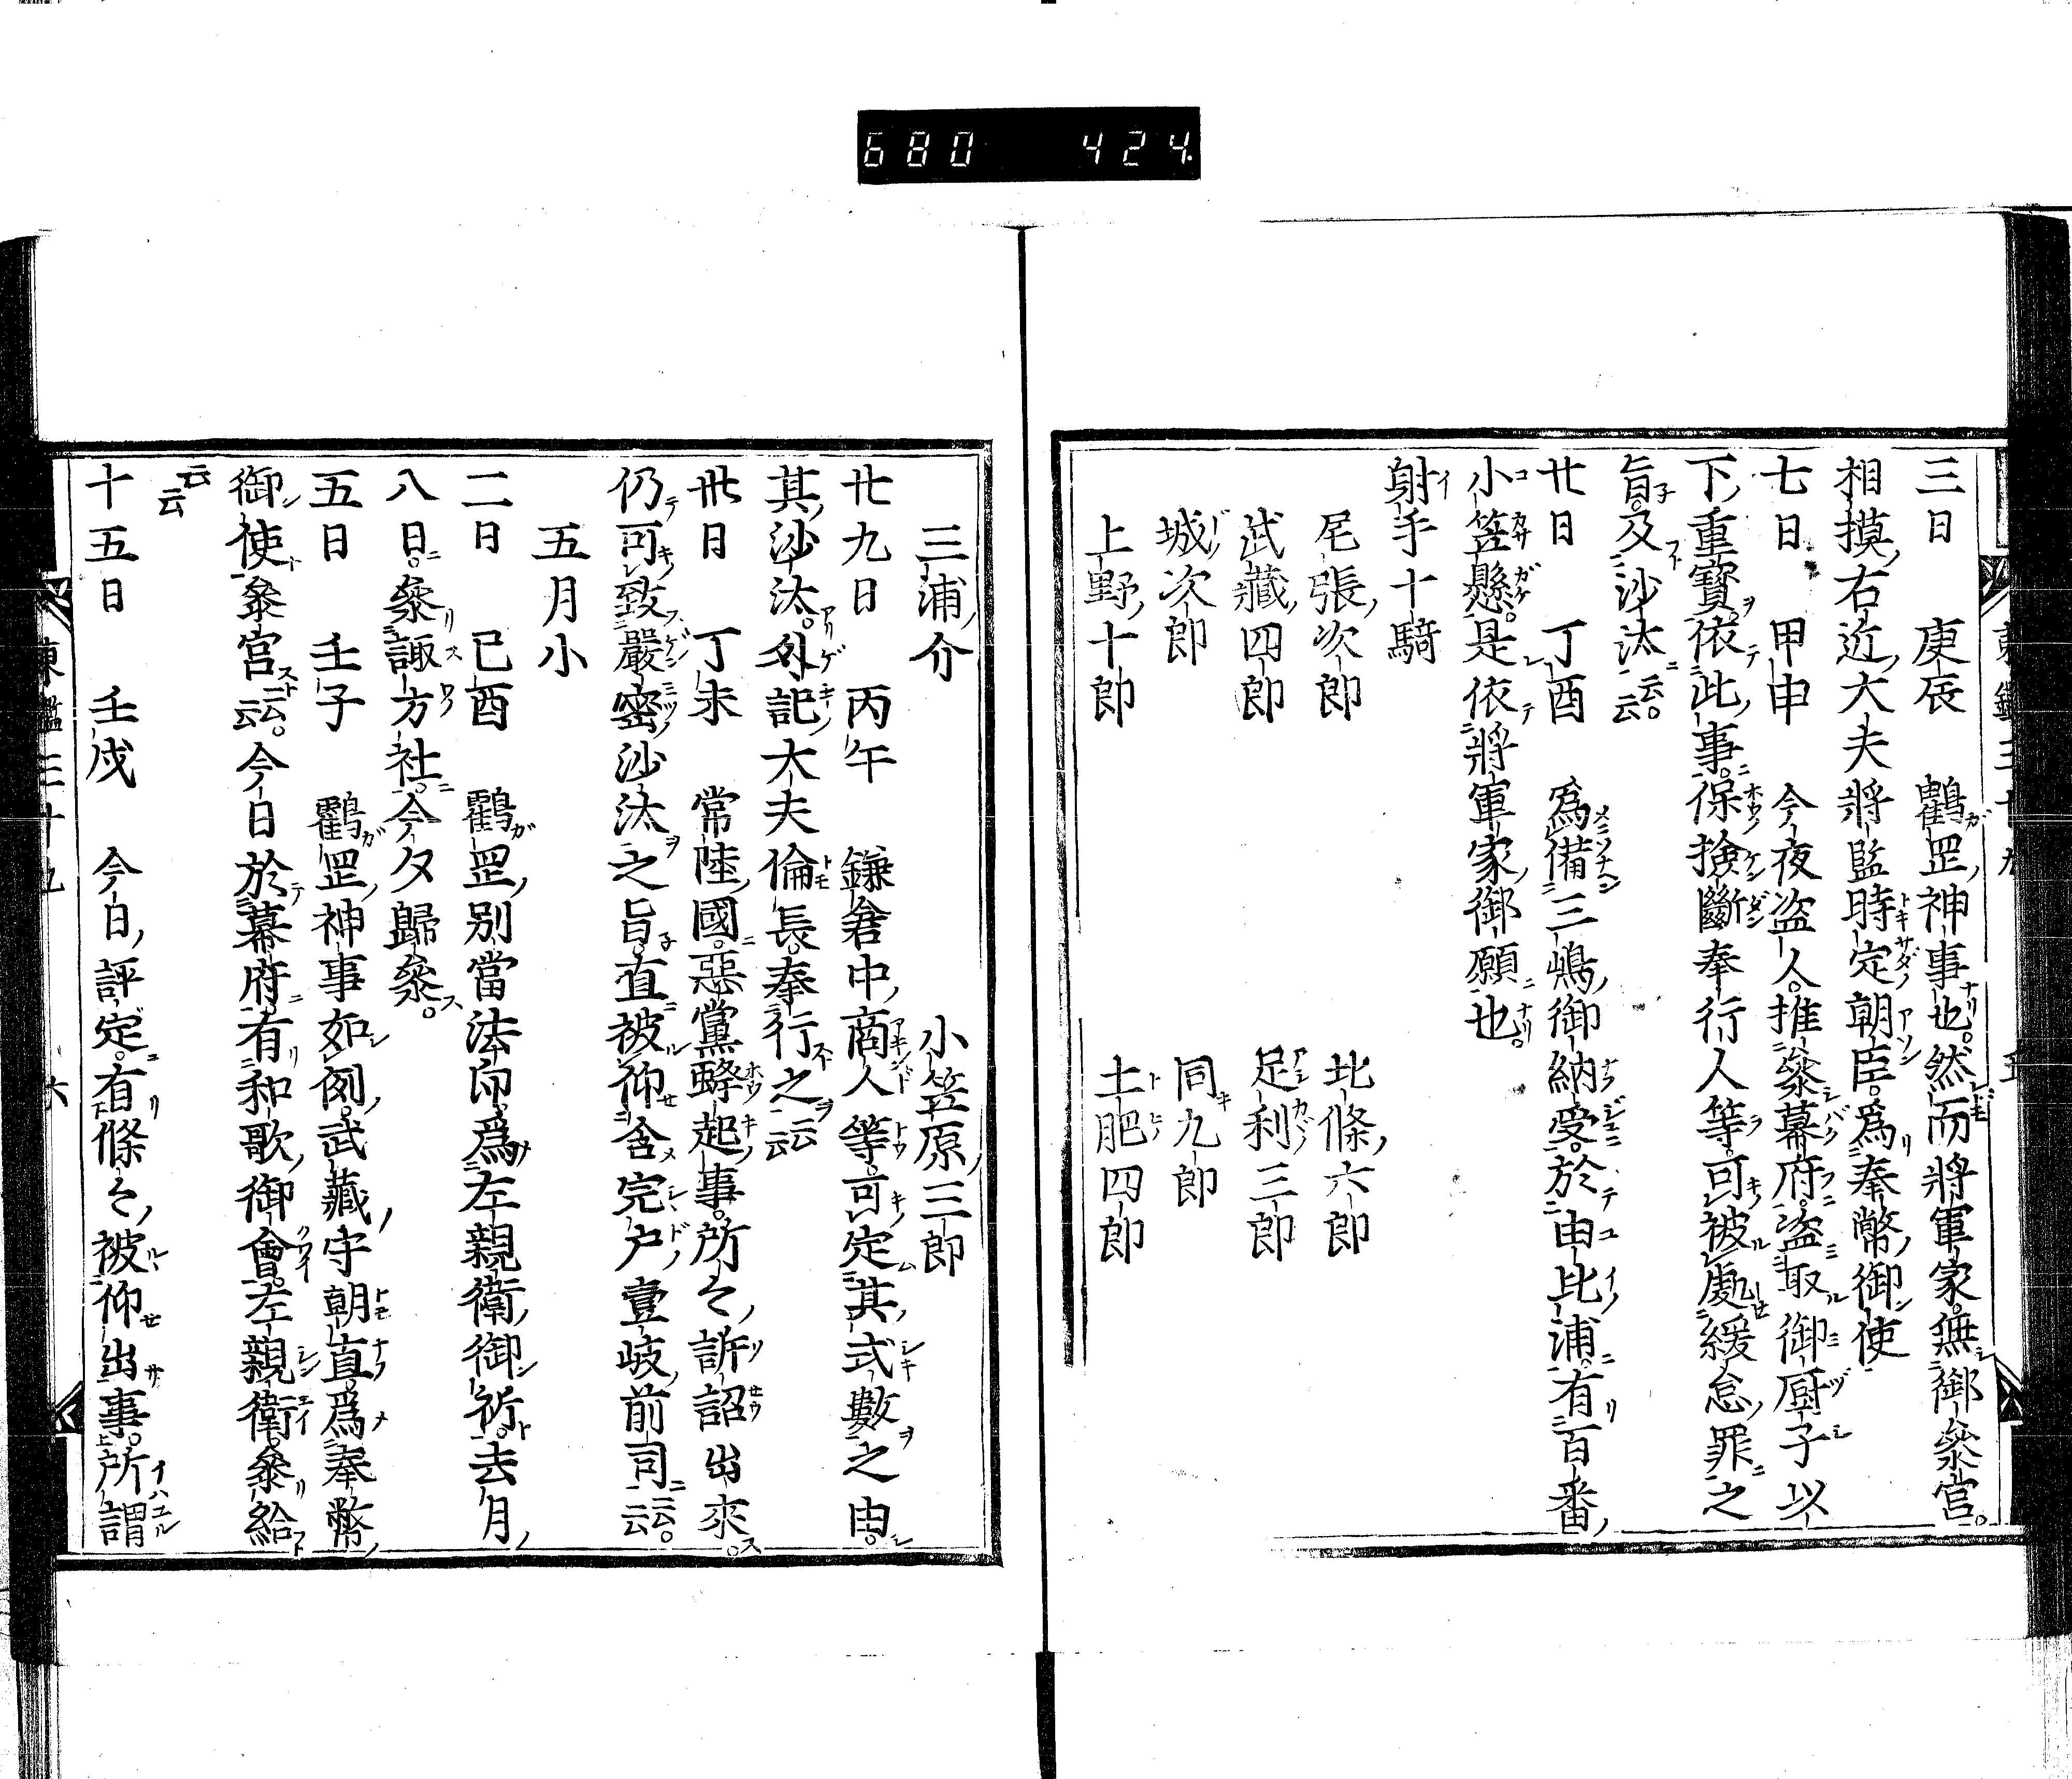 680 424.
三日 庚辰 鸖罡神事也。然而將軍家。無御參宮。
相摸右近大夫將監時定朝臣。爲奉幣御使
七日 甲申 今夜盗人。推參幕府。盗取御厨子以
下重寳。依此事。保撿斷奉行人等。可被處緩怠罪之
旨。及沙汰云云。
廿日 丁酉 爲備三嶋御納受。於由比浦。有百番
小笠懸。是依將軍家御願也。
射手十騎
尾張次郎 北條六郎
武藏四郎 足利三郎
城次郎 同九郎
上野十郎 土肥四郎
三浦介 小笠原三郎
廿九日 丙午 鎌倉中商人等。可定其式數之由。
其沙汰。外記大夫倫長。奉行之云云
丗日 丁未 常陸國。惡黨蜂起事。所々訴詔出來。
仍可致嚴密沙汰之旨。直被仰含完戸壹岐前司云云。
五月小
二日 己酉 鸖罡別當法印。爲左親衛御祈。去月
八日。參諏方社。今夕歸參。
五日 壬子 鸖罡神事如例。武藏守朝直。爲奉幣
御使參宮云云。今日於幕府。有和歌御會。左親衛。參給
云云
十五日 壬戌 今日評定。有條々被仰出事。所謂
東鑑三十九 六